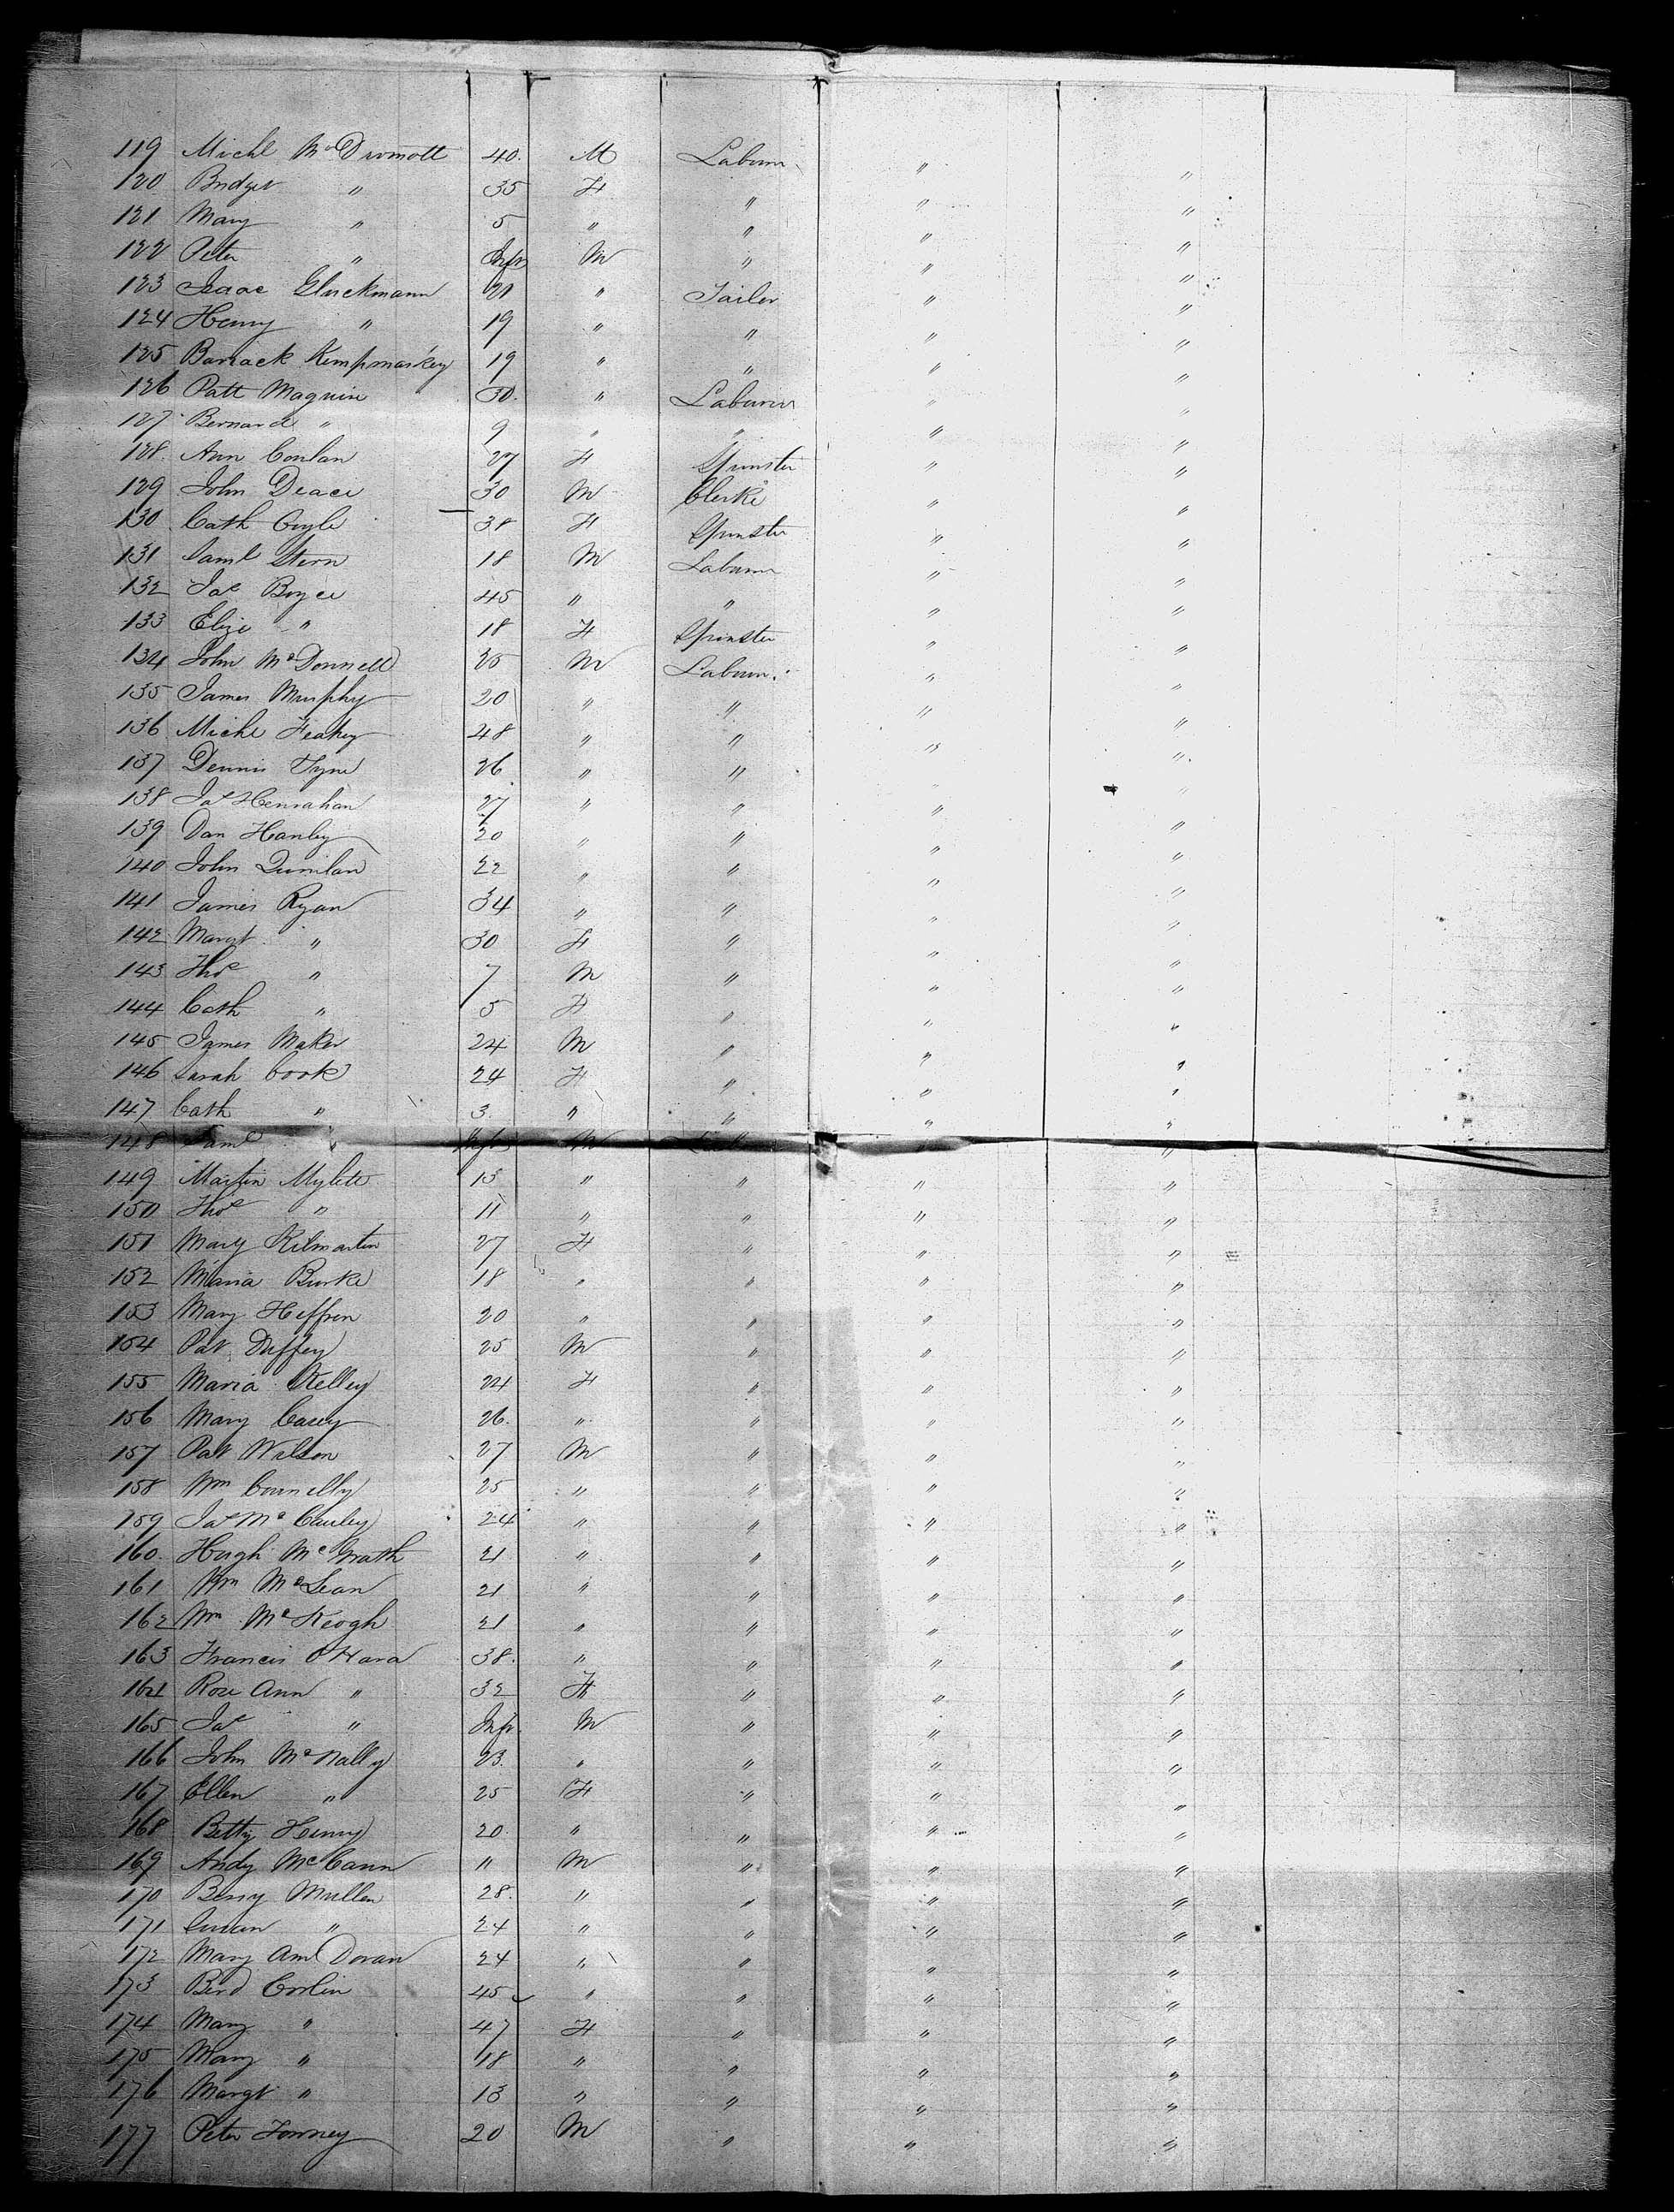 119 Michl McDermott 40. M Laborer " "
120 Bridget " 35 F " " "
121 Mary " 5 " " " "
122 Peter " Infr M " " "
123 Isaac Gluckmann 21 " Tailor " "
124 Henry " 19 " " " "
125 Barrack Kempmaskey 19 " " " "
126 Patt Maguire 30. " Laborer " "
127 Bernard " 9 " " " "
128. Ann Conlan 27 F Spinster " "
129 John Deace 30 M Clerke " "
130 Cath Coyle 38 F Spinster " "
131 Saml Stern 18 M Laborer " "
132 Jas Boyce 45 " " " "
133 Eliza " 18 F Spinster " "
134 John McDonnell 25 M Laborer " "
135 James Murphy 20 " " " "
136 Michl Feahey 48 " " " "
137 Dennis Tyne 26 " " " "
138 Jas Henrahan 27 " " " "
139 Dan Hanley 20 " " " "
140 John Quinlan 22 " " " "
141 James Ryan 34 " " " "
142 Margt " 30 F " " "
143 Thos " 7 M " " "
144 Cath " 5 F " " "
145 James Maker 24 M " " "
146 Sarah Cook 24 F " " "
147 Cath " 3. " " " "
148 Saml " Infr M "
149 Martin Mylete 13 " " " "
150 Thos " 11 " " " "
151 Mary Kilmartin 27 F " " "
152 Maria Burke 18 " " " "
153 Mary Heffron 20 " " " "
154 Pat Duffey 25 M " " "
155 Maria Kelley 24 F " " "
156 Mary Casey 26. " " " "
157 Pat Wilson 27 M " " "
158 Wm Connelly 25 " " " "
159 Jas McCauley 24 " " " "
160. Hugh McGrath 21 " " " "
161 Wm McLean 21 " " " "
162 Wm McKeogh 21 " " " "
163 Francis O'Hara 38. " " " "
164 Rose Ann " 32 F " " "
165 Jas " Infr. M " " "
166 John McNally 23. " " " "
167 Ellen " 25 F " " "
168 Betty Henry 20. " " " "
169 Andy McCann " M " " "
170 Berny Mullen 28. " " " "
171 Susan " 24 " " " "
172 Mary Ann Doran 24 " " " "
173 Bird Corlin 45 " " " "
174 Mary " 47 F " " "
175 Mary " 18 " " " "
176 Margt " 13 " " " "
177 Peter Torney 20 M " " "